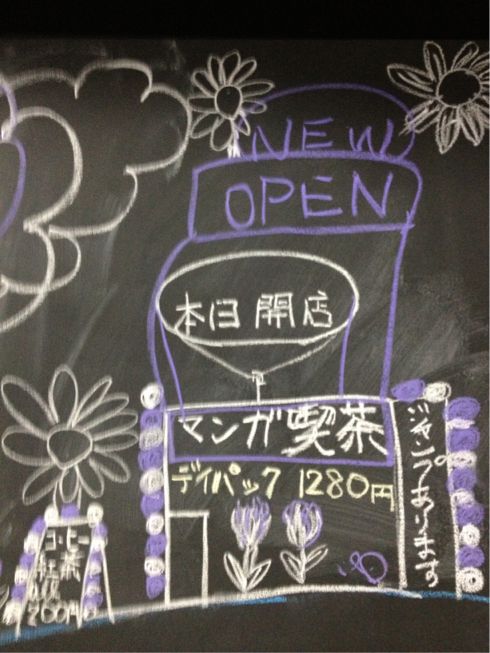 NEW
OPEN
本日 開店
マンガ喫茶
デイパック 1280円
ジャンプあります
コーヒー
紅茶
200円